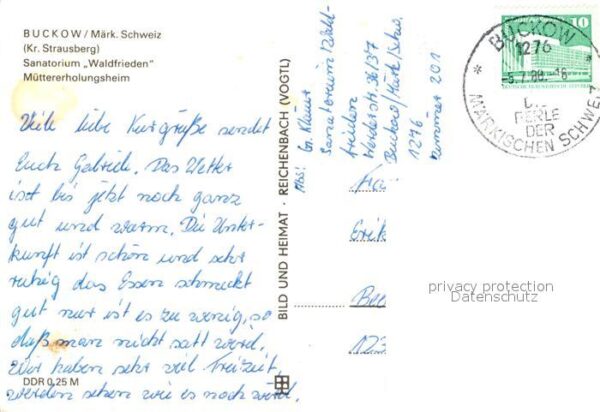 BUCKOW / Märk. Schweiz
(Kr. Strausberg)
Sanatorium „Waldfrieden"
Müttererholungsheim
Viele liebe Kurgrüße sendet
Euch Gabriele. Das Wetter
ist bis jetzt noch ganz
gut und warm. Die Unter-
kunft ist schön und sehr
ruhig das Essen schmeckt
gut nur ist es zu wenig, so
daß man nicht satt wird.
Wir haben sehr viel Freizeit
werden sehen wie es noch wird.
DDR 0,25 M
BILD UND HEIMAT · REICHENBACH (VOGTL)
Abs: G. Kläner
Sanatorium Wald-
frieden
Werderstr. 36/37
Buckow/Märk/Schw.
1276
Zimmer 201
Erik
123
10
BUCKOW
1276
-5.7.88.-16
DIE
PERLE
DER
MÄRKISCHEN SCHWEIZ
privacy protection
Datenschutz